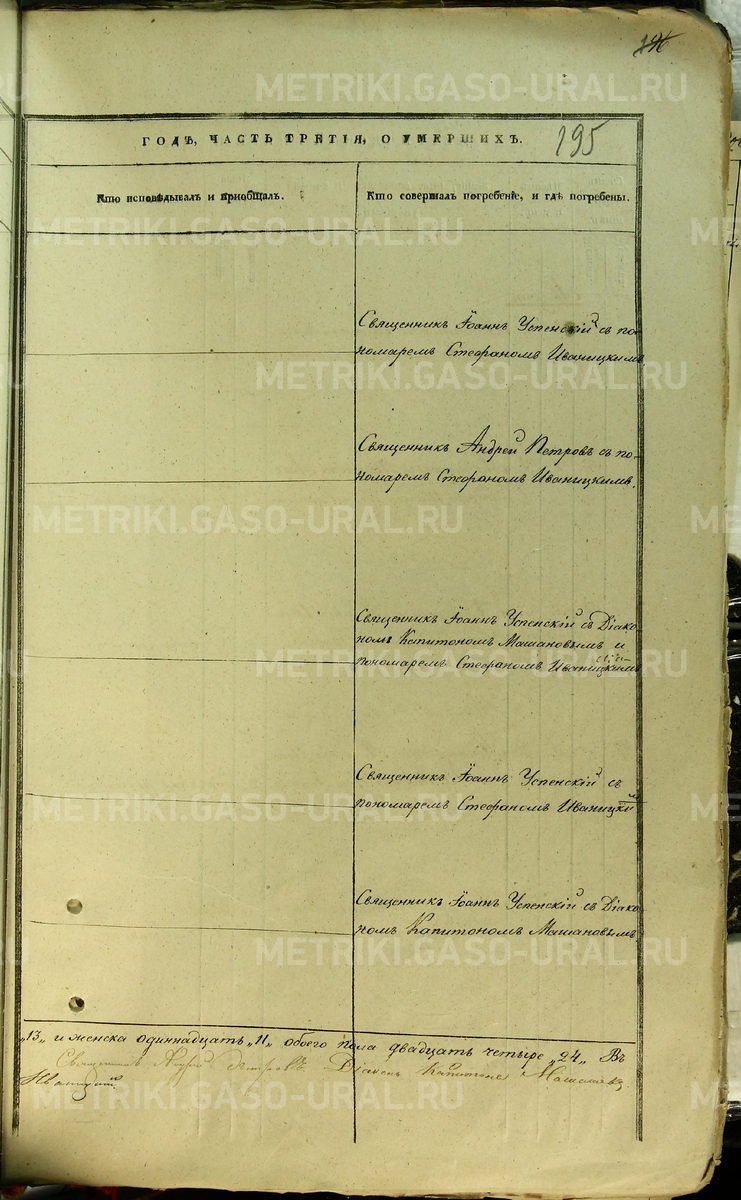 196
ГОДѢ, ЧАСТЬ ТРЕТІЯ, О УМЕРШИХЪ.
195
Кто исповѣдывалъ и приобщалъ.
Кто совершалъ погребеніе, и гдѣ погребены.
Священникъ Іоаннъ Успенскій съ по-
номаремъ Стефаномъ Иваницкимъ
Священникъ Андрей Петровъ съ по-
номаремъ Стефаномъ Иваницкимъ.
Священникъ Іоаннъ Успенскій съ Діако
номъ Капитономъ Машановымъ и
пономаремъ Стефаномъ Иваницкимъ
Священникъ Іоаннъ Успенскій съ
пономаремъ Стефаномъ Иваницки
Священникъ Іоаннъ Успенскій съ Діако
номъ Капитономъ Машановымъ
„13„ и женска одиннадцать „11„ обоего пола двадцать четыре „24„ Въ
Священникъ Андрей Петровъ Діаконъ Капитонъ Машановъ
Иваницкій
METRIKI.GASO-URAL.RU